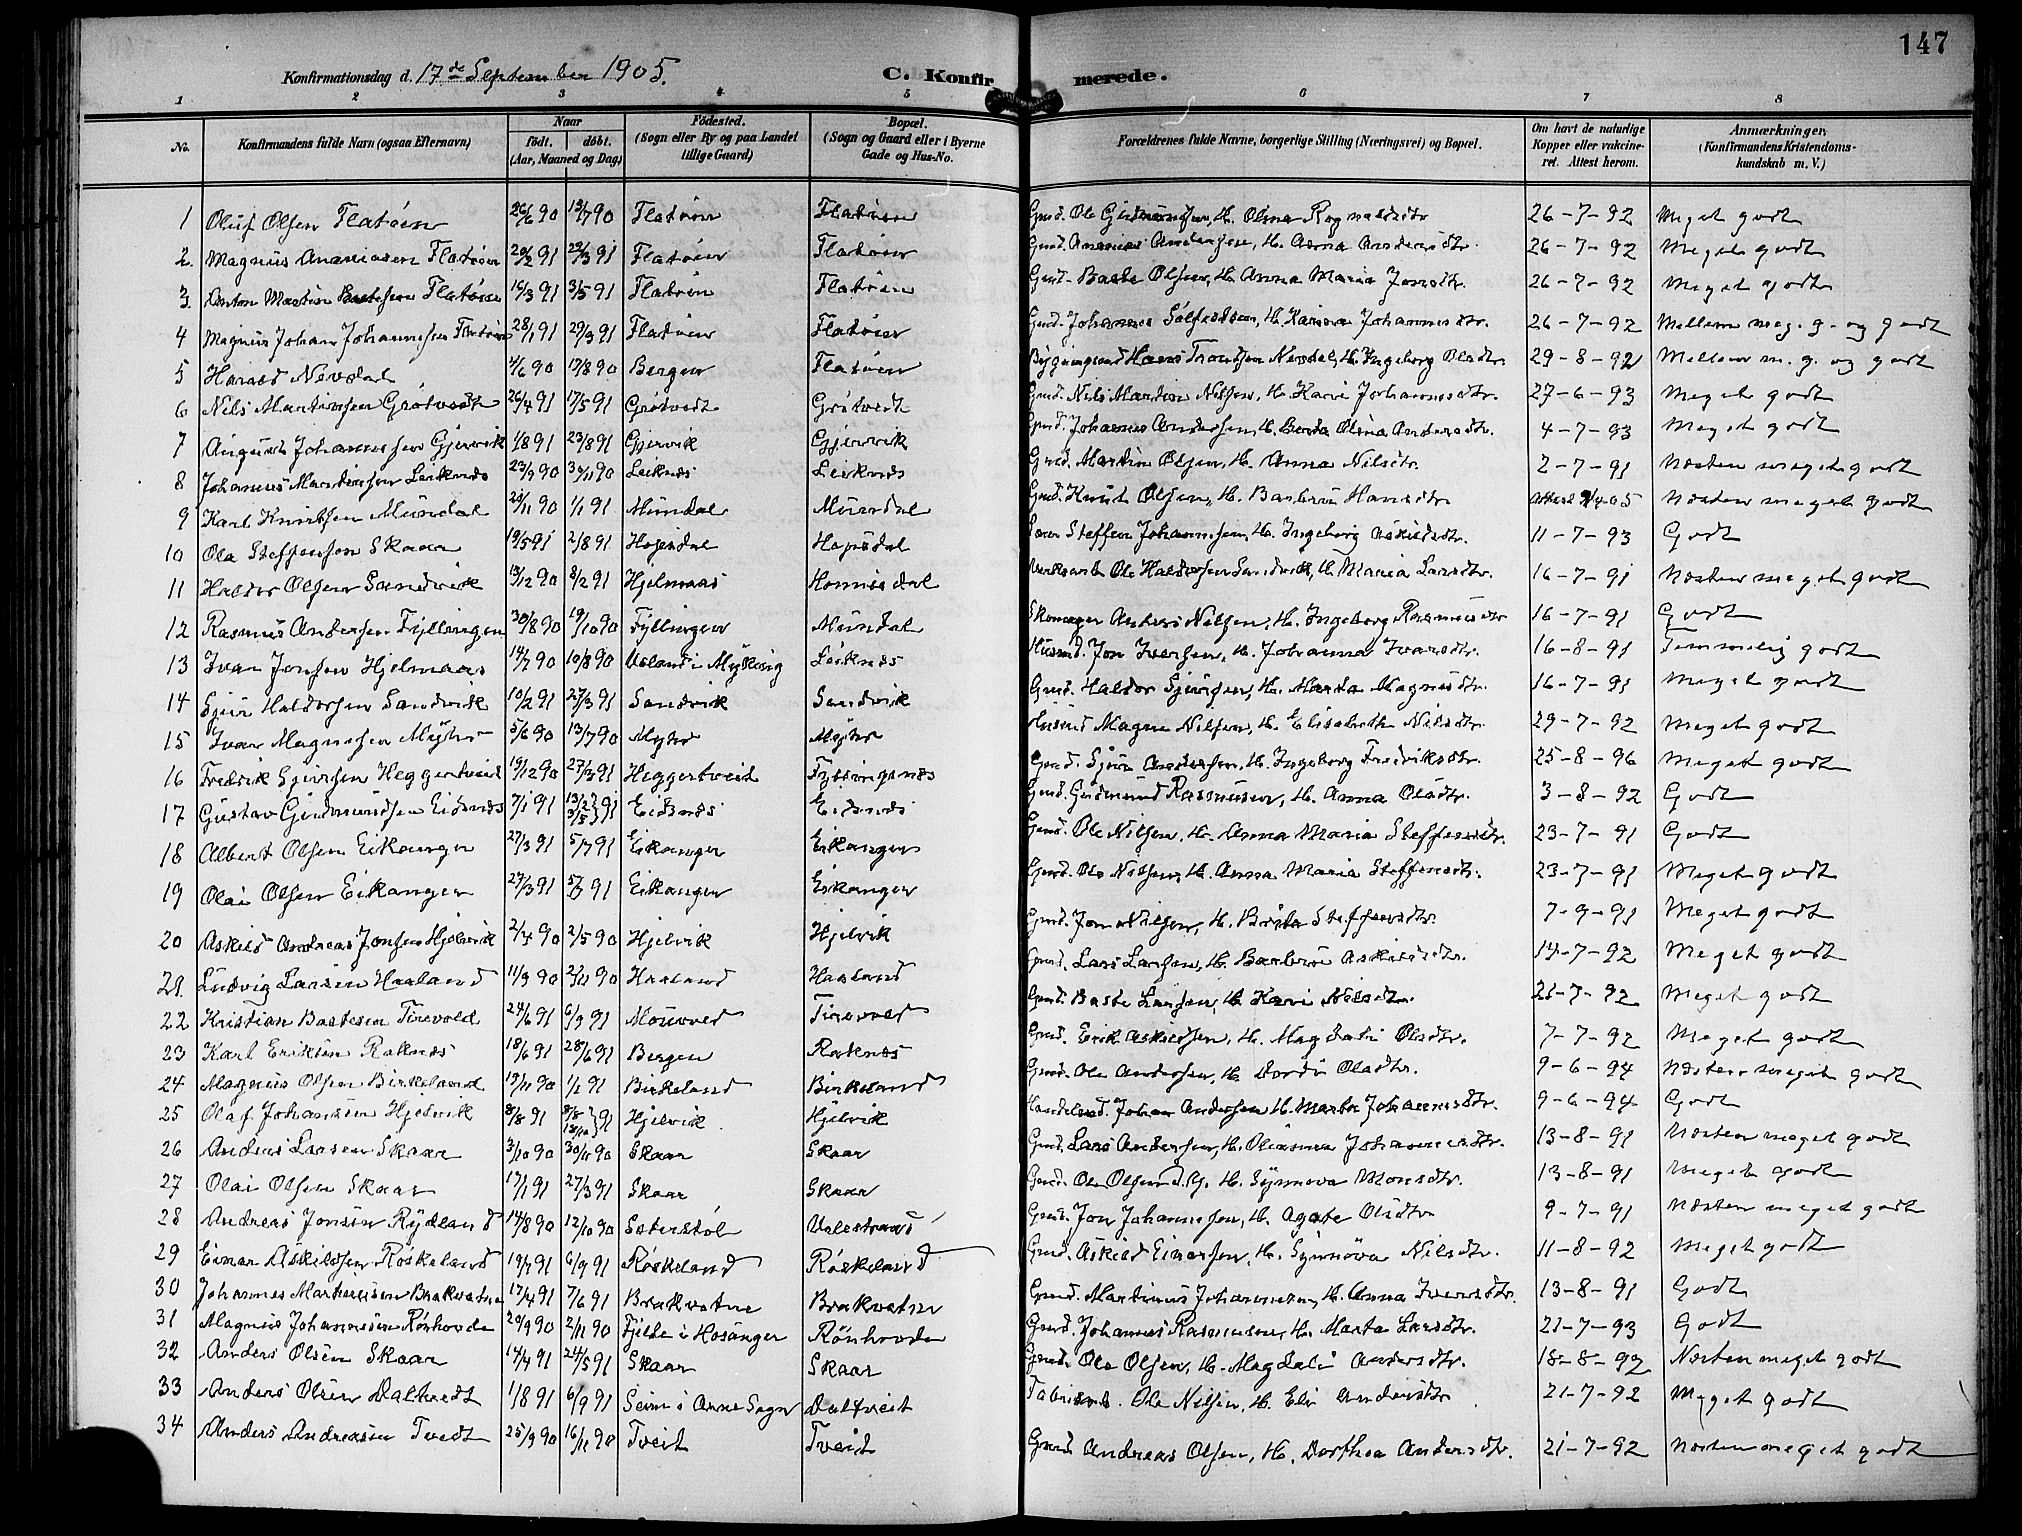 147
Konfirmationsdag d. 17de September 1905.
C. Konfirmerede.
1 2 3 4 5 6 7 8
No. Konfirmandens fulde Navn (ogsaa Efternavn) Naar født. døbt. (Aar, Maaned og Dag) Fødested. (Sogn eller By og paa Landet tillige Gaard) Bopæl. (Sogn og Gaard eller i Byerne Gade og Hus-No. Forældrenes fulde Navne, borgerlige Stilling (Næringsvei) og Bopæl. Om havt de naturlige Kopper eller vakcineret. Attest herom. Anmærkninger. (Konfirmandens Kristendomskundskab m. V.)
1 Oluf Olsen Flatøen 26/6 90 13/7 90 Flatøen Flatøen Gmd. Ole H. Olina Ragnasdtr 26-7-92 Meget godt
2. Magnus Ananiasen Flatøen 20/2 91 29/3 91 Flatøen Flatøen Gmd. Ananias Andersen, H. Anna Andersdtr. 26-7-92 Meget godt
3. Anton Martin Bastesen Flatøen 14/3 91 3/5 91 Flatøen Flatøen Gmd. Baste Olsen, H. Anna Maria Jonsdtr. 26-7-92 Meget godt
4 Magnus Johan Johannessen Flatøen 28/1 91 29/3 91 Flatøen Flatøen Gmd. Johannes H. Karina Johannesdtr. 26-7-92 Mellem meg. g. og godt
5 Harald Nevdal 4/6 90 17/8 90 Bergen Flatøen Hans Nevdal, H. Ingeborg Olsdtr. 29-8-92 Mellem m. g. og godt
6 Nils Martinsen Grøtvedt 26/4 91 17/5 91 Grøtvedt Grøtvedt Gmd. Nils Martin Nilsen, H. Kari Johannesdtr. 27-6-93 Meget godt
7 August Johannessen Gjervik 1/8 91 23/8 91 Gjervik Gjervik Gmd. Johannes Andersen, H. Berta Olina Andersdtr. 4-7-93 Meget godt
8 Johannes Martinsen Leiknes 23/9 90 30/11 90 Leiknes Leiknes Gmd. Martin Olsen, H. Anna Nilsdtr. 2-7-91 Næsten meget godt
9 Karl Knutsen Mundal 20/11 90 1/1 91 Mundal Mundal Gmd. Knut Olsen, H. Barbru Hansdtr. Næsten meget godt
10 Ola Steffensen Skaar 19/5 91 2/8 91 Hopsdal Hopsdal Steffen Johannessen, H. Ingeborg Askildsdtr. 11-7-93 Godt
11 Haldor Olsen Sandvik 13/12 90 8/2 91 Hjelmaas Hopsdal Ole Haldorsen Sandvik, H. Maria Larsdtr. 16-7-91 Næsten meget godt
12 Rasmus Andersen Fyllingen 30/8 90 19/10 90 Fyllingen Mundal Skomager Anders Nilsen, H. Ingeborg Rasmusdtr 16-7-91 Godt
13 Ivar Jonsen Hjelmaas 14/7 90 10/8 90 Uland i Myking Leiknes Husmd. Jon Iversen, H. Johanna Ivarsdtr. 16-8-91 Temmelig godt
14 Sjur Haldorsen Sandvik 10/2 91 27/3 91 Sandvik Sandvik Gmd. Haldor Sjursen, H. Marta Magnusdtr. 16-7-91 Meget godt
15 Ivar Magnesen Myhr 5/6 90 13/7 90 Myhr Myhr Husmd Magne Nilsen, H. Elisabeth Nilsdtr. 29-7-92 Meget godt
16 Fredrik Sjursen Heggertveit 19/12 90 27/3 91 Heggertveit Fyllingsnes Gmd. Sjur Andersen, H. Ingeborg Fredriksdtr. 25-8-96 Meget godt
17 Gustav Gudmundsen Eidsnes 7/1 91 13/2 3/5 } 91 Eidsnes Eidsnes Gmd. Gudmund Rasmussen, H. Anna Olsdtr. 3-8-92 Godt
18 Albert Olsen Eikanger 27/3 91 5/7 91 Eikanger Eikanger Gmd. Ole Nilsen, H. Anna Maria Steffensdtr. 23-7-91 Godt
19 Olai Olsen Eikanger 27/3 91 5/7 91 Eikanger Eikanger Gmd. Ole Nilsen, H. Anna Maria Steffensdtr. 23-7-91 Meget godt
20 Askild Andreas Jonsen Hjelvik 2/4 90 2/5 90 Hjelvik Hjelvik Gmd. Jon Nilsen, H. Brita Steffensdtr. 7-9-91 Meget godt
21. Ludvig Larsen Haaland 11/9 90 2/11 90 Haaland Haaland Gmd. Lars Larsen, H. Barbru Askildsdtr. 14-7-92 Meget godt
22 Kristian Bastesen Tirevold 24/6 91 6/9 91 Tirevold Gmd. Baste Larsen, H. Kari Nilsdtr. 21-7-92 Meget godt
23 Karl Eriksen Raknes 18/6 91 28/6 91 Bergen Raknes Gmd. Erik Askildsen, H. Magdali Olsdtr. 7-7-92 Meget godt
24 Magnus Olsen Birkeland 19/11 90 1/1 91 Birkeland Birkeland Gmd. Ole Andersen, H. Dordi Olsdtr. 9-6-94 Næsten meget godt
25 Olaf Johansen Hjelvik 8/8 91 8/8 18/10 } 91 Hjelvik Hjelvik Handelsmd. Johan Andersen H. Marta Johannesdtr. 9-6-94 Godt
26 Anders Larsen Skaar 3/10 90 30/11 90 Skaar Skaar Gmd. Lars Andersen, H. Oleanna Johannesdtr. 13-8-91 Næsten meget godt
27 Olai Olsen Skaar 17/1 91 27/3 91 Skaar Skaar Gmd. Ole Olsen d. y. H. Synneva Monsdtr. 13-8-91 Meget godt
28 Andreas Jonsen Rydland 14/8 90 12/10 90 Sæterstøl Valestrand Gmd. Jon Johannessen, H. Agate Olsdtr 9-7-91 Næsten meget godt
29 Einar Askildsen Røskeland 19/7 91 6/9 91 Røskeland Røskeland Gmd. Askild Einarsen, H. Synnøva Nilsdtr. 11-8-92 Meget godt
30 Johannes Martinusen Brakvatne 17/4 91 7/6 91 Brakvatne Brakvatne Gmd. Martinus Johannessen, H. Anna Iversdtr. 13-8-91 Godt
31 Magnus Johannesen Rønhovde 20/9 90 2/11 90 Fjelde i Hosanger Rønhovde Gmd. Johannes Rasmusen, H. Marta Larsdtr. 21-7-93 Godt
32 Anders Olsen Skaar 14/4 91 24/5 91 Skaar Skaar Gmd. Ole Olsen, H. Magdali Andersdtr. 18-8-92 Næsten meget godt
33 Anders Olsen Daltvedt 1/8 91 6/9 91 Seim i Arne Sogn Daltveit Ole Nilsen, H. Eli Andersdtr 21-7-92 Meget godt
34 Anders Andreasen Tvedt 25/9 90 16/11 90 Tveit Tveit Gmd. Andreas Olsen, H. Dorthea Andersdtr. 21-7-92 Næsten meget godt